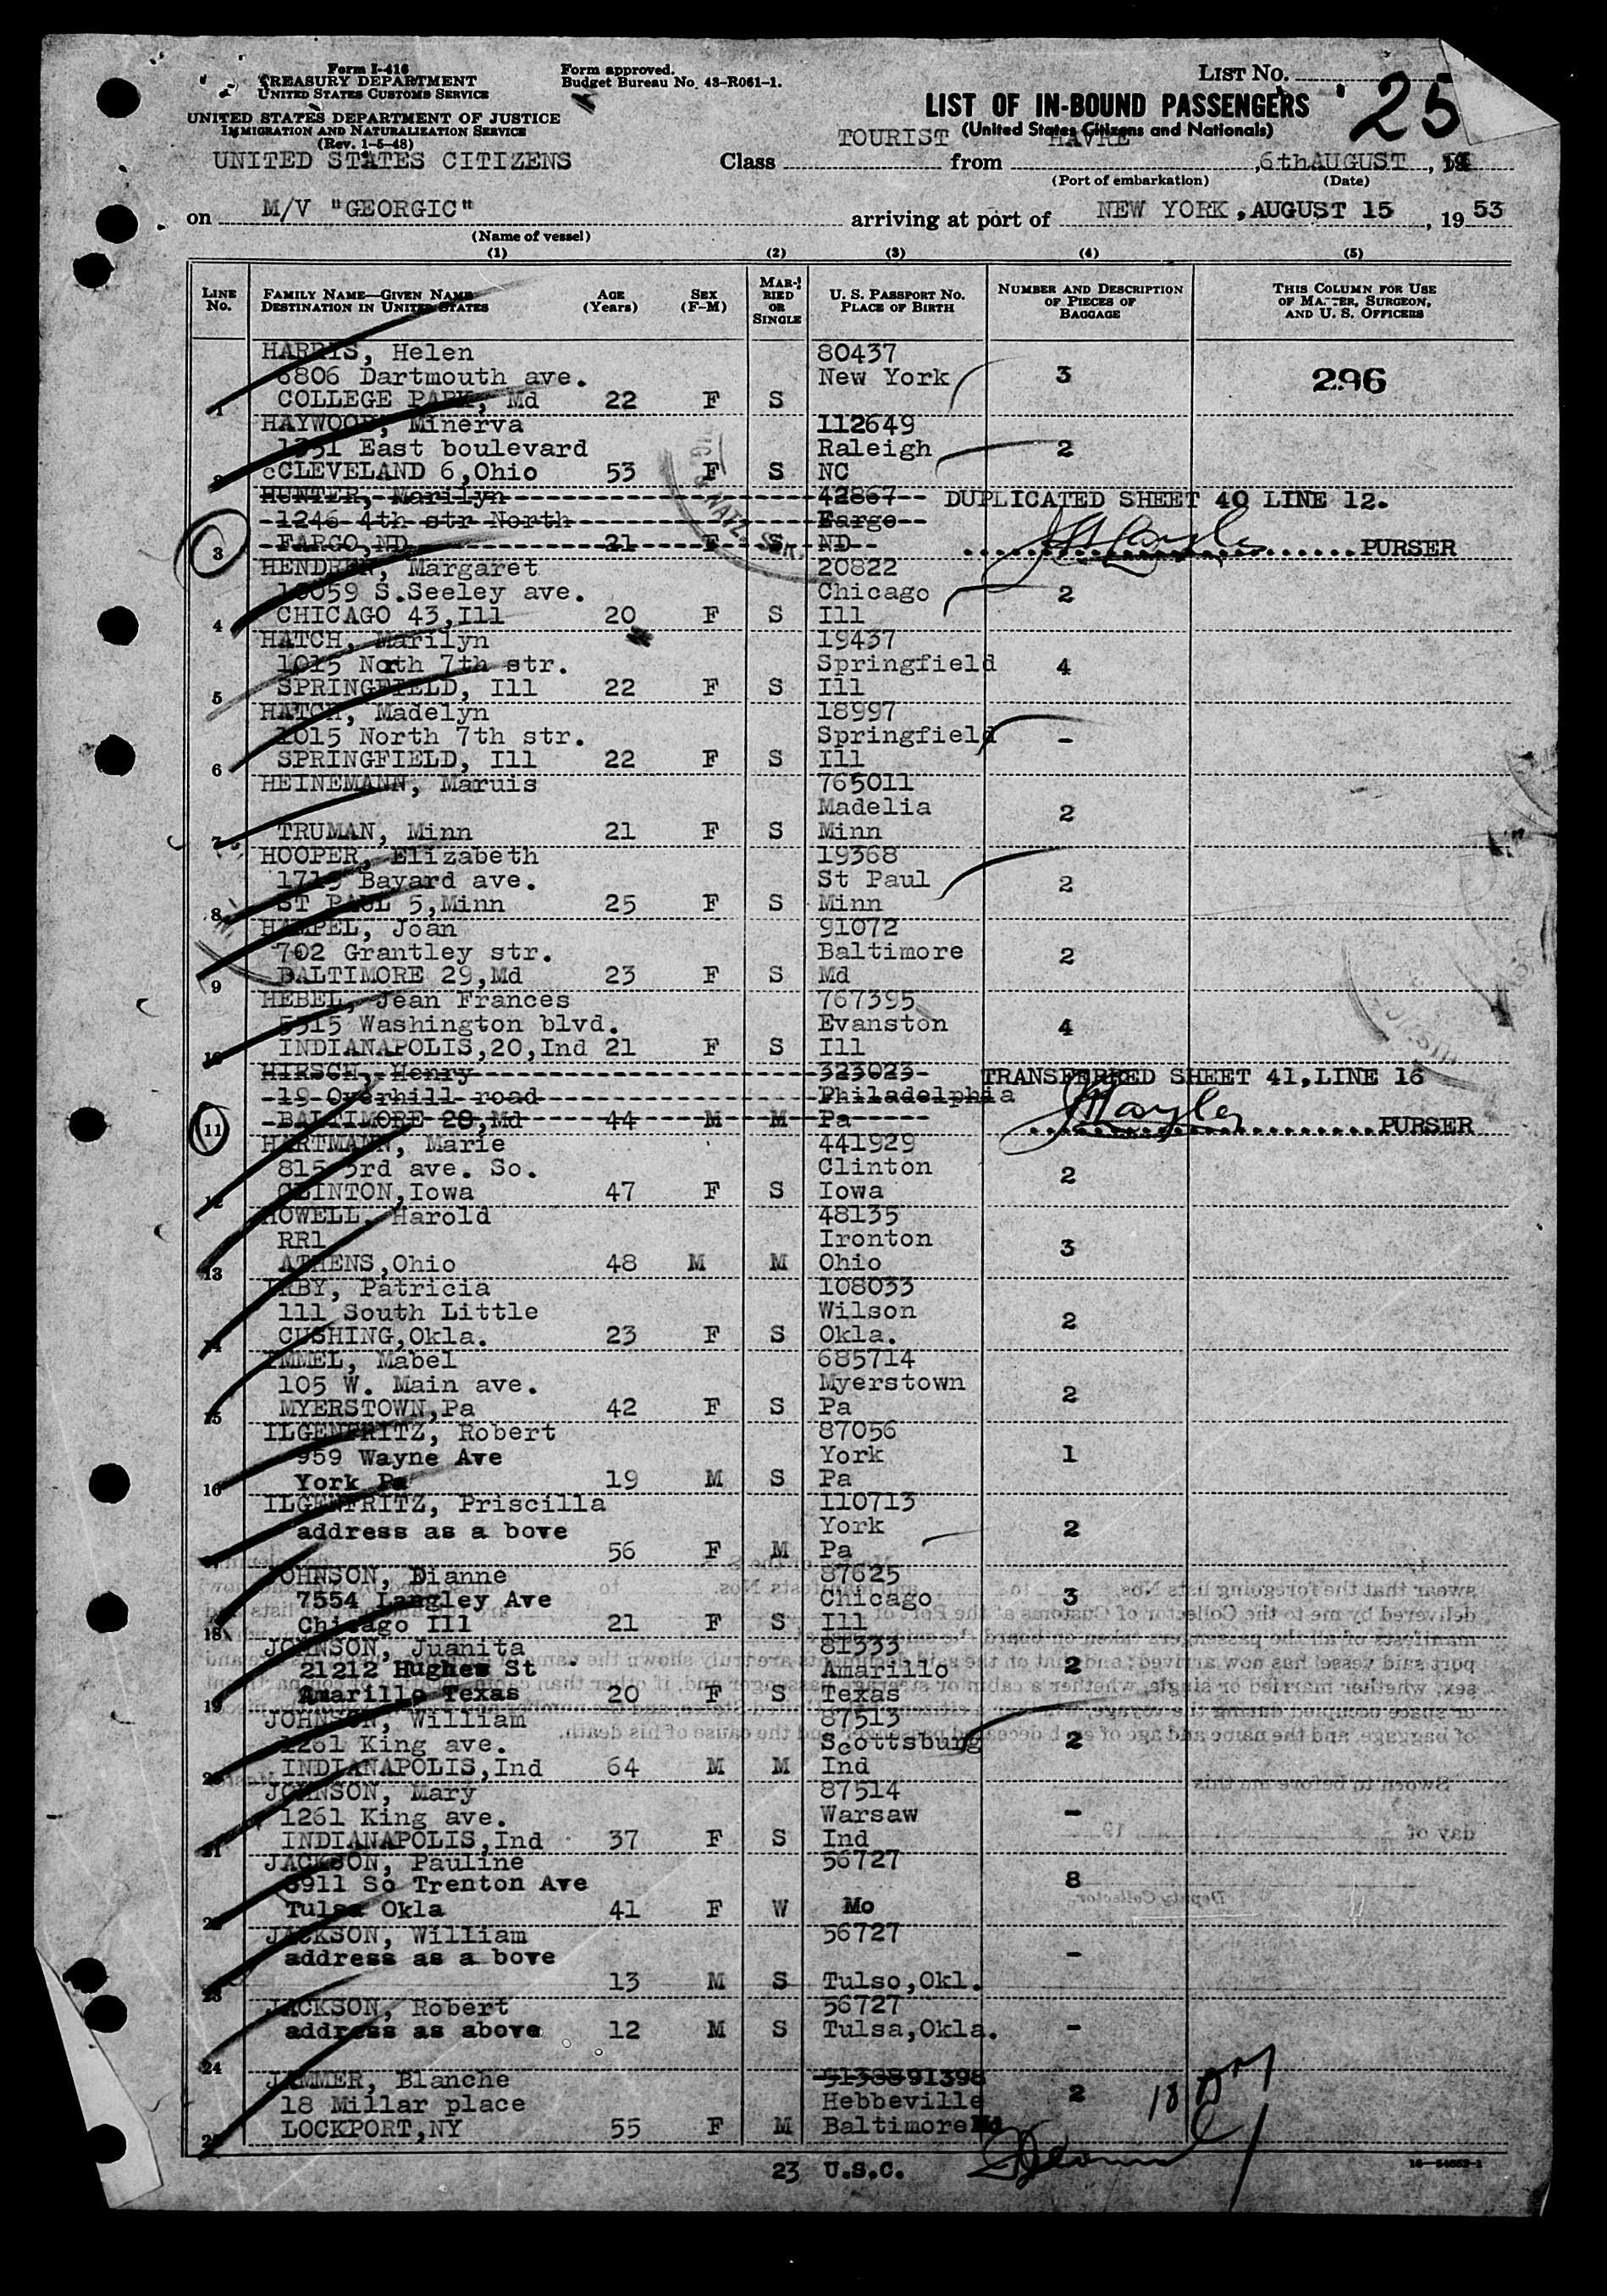 Form I-416
TREASURY DEPARTMENT
UNITED STATES CUSTOMS SERVICE
UNITED STATES DEPARTMENT OF JUSTICE
IMMIGRATION AND NATURALIZATION SERVICE
(Rev. 1-5-48)
UNITED STATES CITIZENS
Form approved.
Budget Bureau No. 43-R061-1.
LIST No.
25
LIST OF IN-BOUND PASSENGERS
(United States Citizens and Nationals)
Class TOURIST from HAVRE, 6thAUGUST, 19
(Port of embarkation) (Date)
on M/V "GEORGIC" arriving at port of NEW YORK, AUGUST 15, 19 53
(Name of vessel)
(1) (2) (3) (4) (5)
LINE No.
FAMILY NAME—GIVEN NAME
DESTINATION IN UNITED STATES
AGE (Years)
SEX (F-M)
MARRIED OR SINGLE
U. S. PASSPORT NO.
PLACE OF BIRTH
NUMBER AND DESCRIPTION OF PIECES OF BAGGAGE
THIS COLUMN FOR USE OF MASTER, SURGEON, AND U. S. OFFICERS
HARRIS, Helen 80437
6806 Dartmouth ave. New York 3 296
1 COLLEGE PARK, Md 22 F S
HAYWOOD, Minerva 112649
1351 East boulevard Raleigh 2
2 cCLEVELAND 6,Ohio 53 F S NC
HUNTER, Marilyn 42867 DUPLICATED SHEET 40 LINE 12.
1246 4th str North Fargo
3 FARGO,ND 21 F S ND PURSER
HENDREN, Margaret 20822
10059 S.Seeley ave. Chicago 2
4 CHICAGO 43,Ill 20 F S Ill
HATCH, Marilyn 19437
1015 North 7th str. Springfield 4
5 SPRINGFIELD, Ill 22 F S Ill
HATCH, Madelyn 18997
1015 North 7th str. Springfield -
6 SPRINGFIELD, Ill 22 F S Ill
HEINEMANN, Maruis 765011
Madelia 2
7 TRUMAN, Minn 21 F S Minn
HOOPER, Elizabeth 19368
1715 Bayard ave. St Paul 2
8 ST PAUL 5,Minn 25 F S Minn
HAMPEL, Joan 91072
702 Grantley str. Baltimore 2
9 BALTIMORE 29,Md 23 F S Md
HEBEL, Jean Frances 767395
5315 Washington blvd. Evanston 4
10 INDIANAPOLIS,20,Ind 21 F S Ill
HIRSCH, Henry 323023 TRANSFERRED SHEET 41,LINE 16
19 Overhill road Philadelphia
11 BALTIMORE 20,Md 44 M M Pa PURSER
HARTMANN, Marie 441929
815 3rd ave. So. Clinton 2
12 CLINTON,Iowa 47 F S Iowa
HOWELL, Harold 48135
RR1 Ironton 3
13 ATHENS,Ohio 48 M M Ohio
IRBY, Patricia 108033
111 South Little Wilson 2
14 CUSHING,Okla. 23 F S Okla.
IMMEL, Mabel 685714
105 W. Main ave. Myerstown 2
15 MYERSTOWN,Pa 42 F S Pa
ILGENFRITZ, Robert 87056
959 Wayne Ave York 1
16 York Pa 19 M S Pa
ILGENFRITZ, Priscilla 110713
address as a bove York 2
17 56 F M Pa
JOHNSON, Dianne 87625
7554 Langley Ave Chicago 3
18 Chicago Ill 21 F S Ill
JOHNSON, Juanita 81333
21212 Hughes St Amarillo 2
19 Amarillo Texas 20 F S Texas
JOHNSON, William 87513
1261 King ave. Scottsburg 2
20 INDIANAPOLIS,Ind 64 M M Ind
JOHNSON, Mary 87514
1261 King ave. Warsaw -
21 INDIANAPOLIS,Ind 37 F S Ind
JACKSON, Pauline 56727
3911 So Trenton Ave 8
22 Tulsa Okla 41 F W Mo
JACKSON, William 56727
address as a bove -
23 13 M S Tulso,Okl.
JACKSON, Robert 56727
address as above 12 M S Tulsa,Okla. -
24
JAMMER, Blanche 91388 91398
18 Millar place Hebbeville 2 18
25 LOCKPORT,NY 55 F M Baltimore Md
23 U.S.C.
16—54652-1